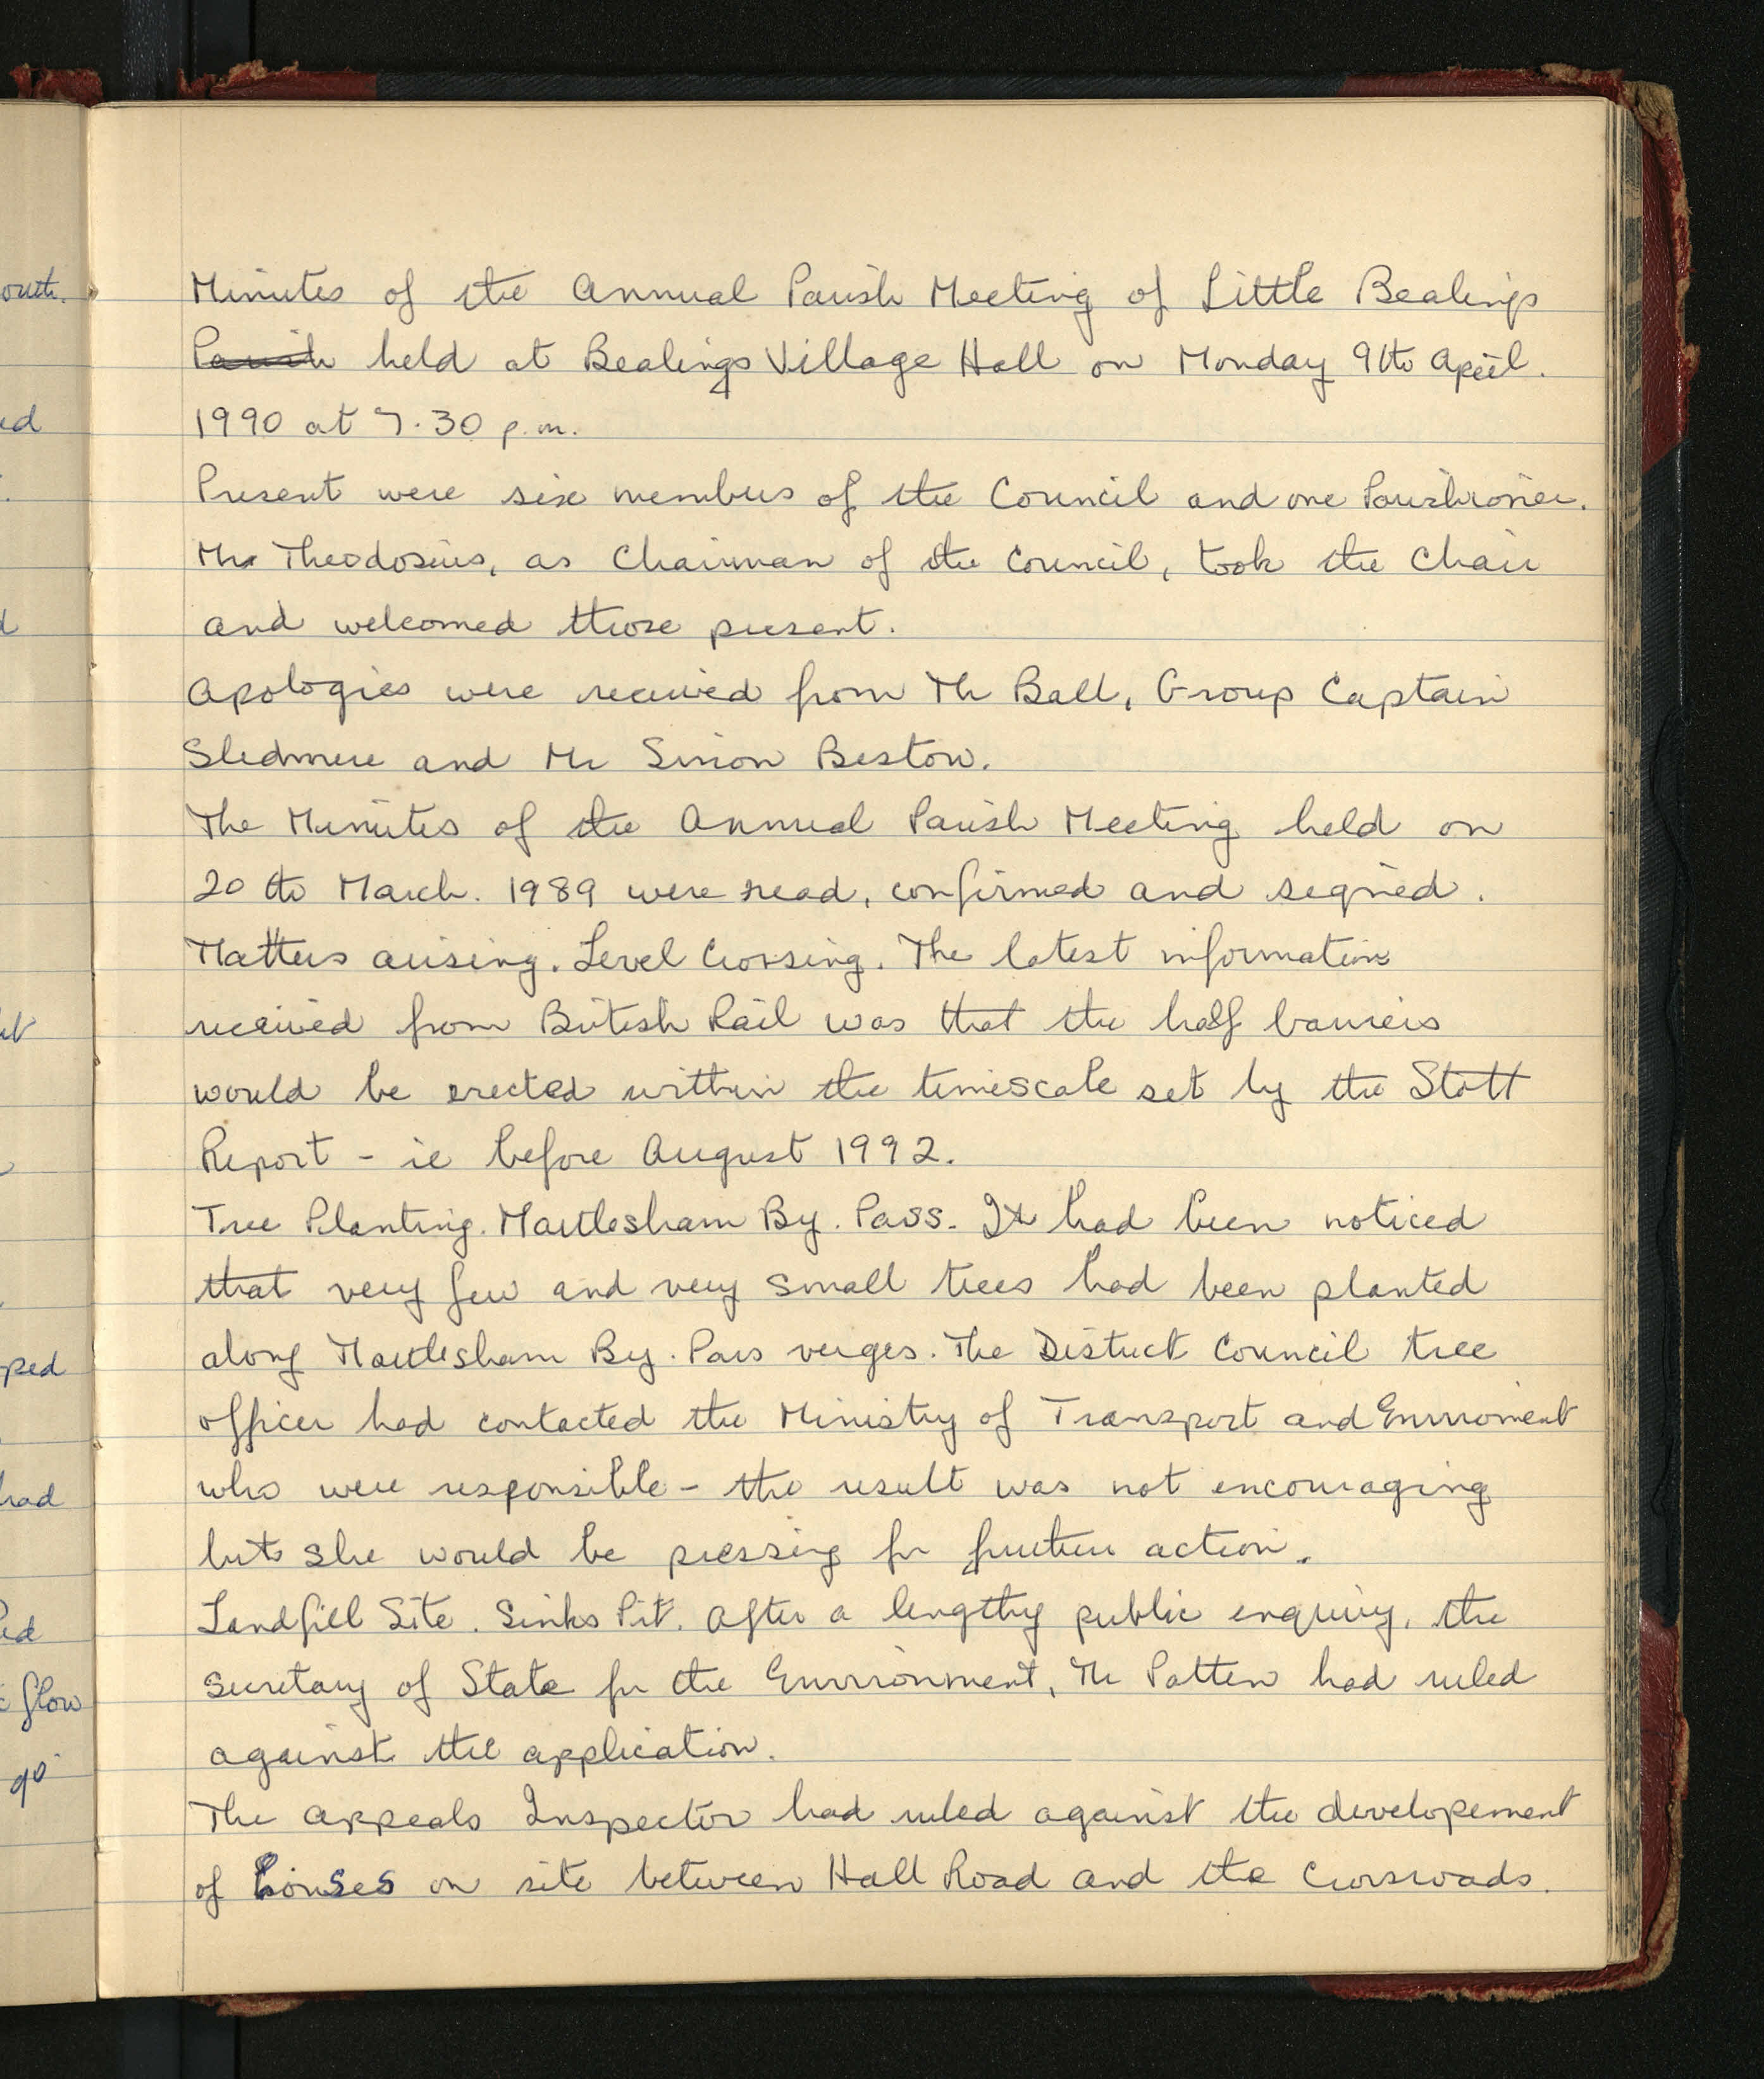 Minutes of the Annual Parish Meeting of Little Bealings
Parish held at Bealings Village Hall on Monday 9th April.
1990 at 7.30 p.m.
Present were six members of the Council and one Parishioner.
Mrs Theodosius, as Chairman of the Council, took the Chair
and welcomed those present.
Apologies were received from Mr Ball, Group Captain
Sledmere and Mr Simon Beston.
The Minutes of the Annual Parish Meeting held on
20th March. 1989 were read, confirmed and signed.
Matters arising. Level Crossing. The latest information
received from British Rail was that the half barriers
would be erected within the timescale set by the Stott
Report - ie before August 1992.
Tree Planting. Martlesham By. Pass. It had been noticed
that very few and very small trees had been planted
along Martlesham By. Pass verges. The District Council tree
officer had contacted the Ministry of Transport and Enviroment
who were responsible - the result was not encouraging
but she would be pressing for further action.
Landfill Site. Sinks Pit. After a lengthy public enquiry, the
Secretary of State for the Environment, Mr Patten had ruled
against the application.
The Appeals Inspector had ruled against the developement
of houses on site between Hall Road and the Crossroads.